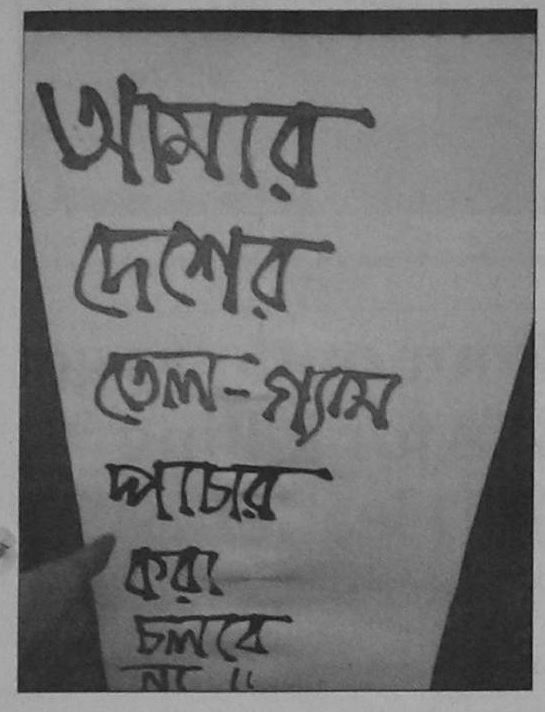 আমার
দেশের
তেল-গ্যাস
পাচার
করা
চলবে
না ॥